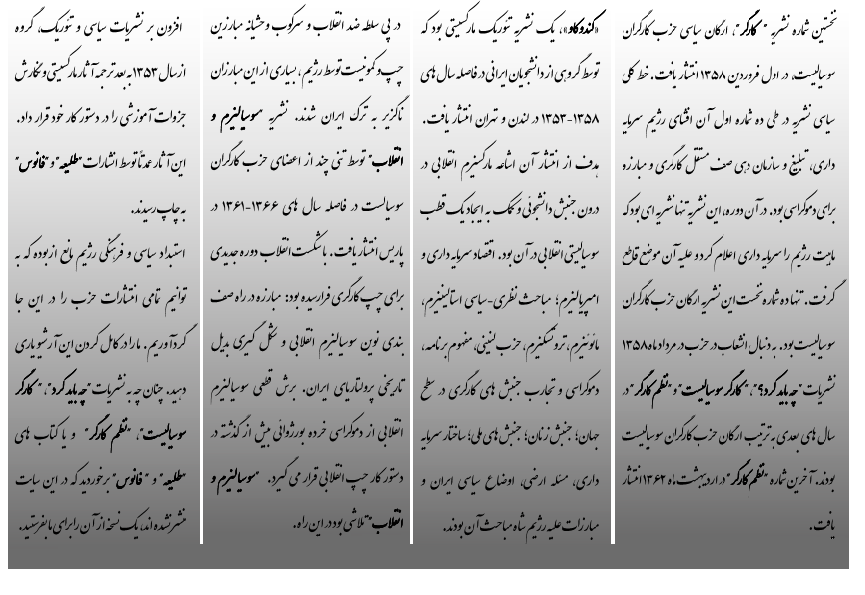 نخستین شماره نشریه "کارگر"، ارگان سیاسی حزب کارگران
سوسیالیست، در اول فروردین ۱۳۵۸ انتشار یافت. خط کلی
سیاسی نشریه در طی ده شماره اول آن افشای رژیم سرمایه
داری، تبلیغ و سازمان دهی صف مستقل کارگری و مبارزه
برای دموکراسی بود. در آن دوره، این نشریه تنها نشریه ای بود که
ماهیت رژیم را سرمایه داری اعلام کرد و علیه آن موضع قاطع
گرفت. تنها ده شماره نخست این نشریه ارگان حزب کارگران
سوسیالیست بود. به دنبال انشعاب در حزب در مرداد ماه ۱۳۵۸
نشریات "چه باید کرد؟"، "کارگر سوسیالیست" و "نظم کارگر" در
سال های بعدی به ترتیب ارگان حزب کارگران سوسیالیست
بودند. آخرین شماره "نظم کارگر" در اردیبهشت ماه ۱۳۶۲ انتشار
یافت.
«کندوکاو»، یک نشریه تئوریک مارکسیستی بود که
توسط گروهی از دانشجویان ایرانی در فاصله سال های
۱۳۵۳-۱۳۵۸ در لندن و تهران انتشار یافت.
هدف از انتشار آن اشاعه مارکسیزم انقلابی در
درون جنبش دانشجوئی و کمک به ایجاد یک قطب
سوسیالیستی انقلابی در آن بود. اقتصاد سرمایه داری و
امپریالیزم؛ مباحث نظری-سیاسی استالینیزم،
مائوئیزم، تروتسکیزم، حزب لنینی، مفهوم برنامه،
دموکراسی و تجارب جنبش های کارگری در سطح
جهان؛ جنبش زنان؛ جنبش های ملی؛ ساختار سرمایه
داری، مسئله ارضی، اوضاع سیاسی ایران و
مبارزات علیه رژیم شاه مباحث آن بودند.
در پی سلطه ضد انقلاب و سرکوب وحشیانه مبارزین
چپ و کمونیست توسط رژیم، بسیاری از این مبارزان
ناگزیر به ترک ایران شدند. نشریه "سوسیالیزم و
انقلاب" توسط تنی چند از اعضای حزب کارگران
سوسیالست در فاصله سال های ۱۳۶۶-۱۳۶۱ در
پاریس انتشار یافت. با شکست انقلاب دوره جدیدی
برای چپ کارگری فرا رسیده بود: مبارزه در راه صف
بندی نوین سوسیالیزم انقلابی و شکل گیری بدیل
تاریخی پرولتاریای ایران. برش قطعی سوسیالیزم
انقلابی از دموکراسی خرده بورژوائی بیش از گذشته در
دستور کار چپ انقلابی قرار می گیرد. "سوسیالیزم و
انقلاب" تلاشی بود در این راه.
افزون بر نشریات سیاسی و تئوریک، گروه
از سال ۱۳۵۳ به بعد ترجمه آثار مارکسیستی و نگارش
جزوات آموزشی را در دستور کار خود قرار داد.
این آثار عمدتاً توسط انتشارات "طلیعه" و "فانوس"
به چاپ رسیدند.
استبداد سیاسی و فرهنگی رژیم مانع از بوده که به
توانیم تمامی انتشارات حزب را در این جا
گرد آوریم. ما را در کامل کردن این آرشیو یاری
دهید. چنان چه به نشریات "چه باید کرد"، "کارگر
سوسیالیست"، "نظم کارگر" و یا کتاب های
"طلیعه" و "فانوس" برخوردید که در این سایت
منتشر نشده اند، یک نسخه از آن را برای ما بفرستید.